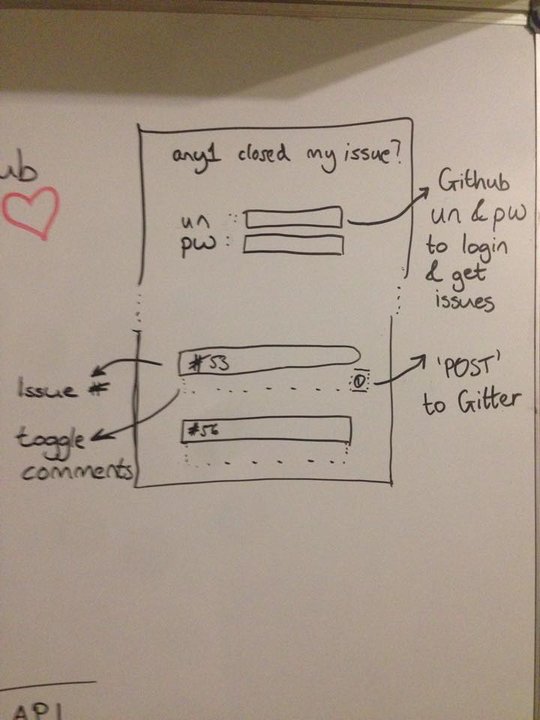 ub
any1 closed my issue?
un :
pw :
Github
un & pw
to login
& get
issues
#53
Issue #
'POST'
to Gitter
toggle
comments
#56
API